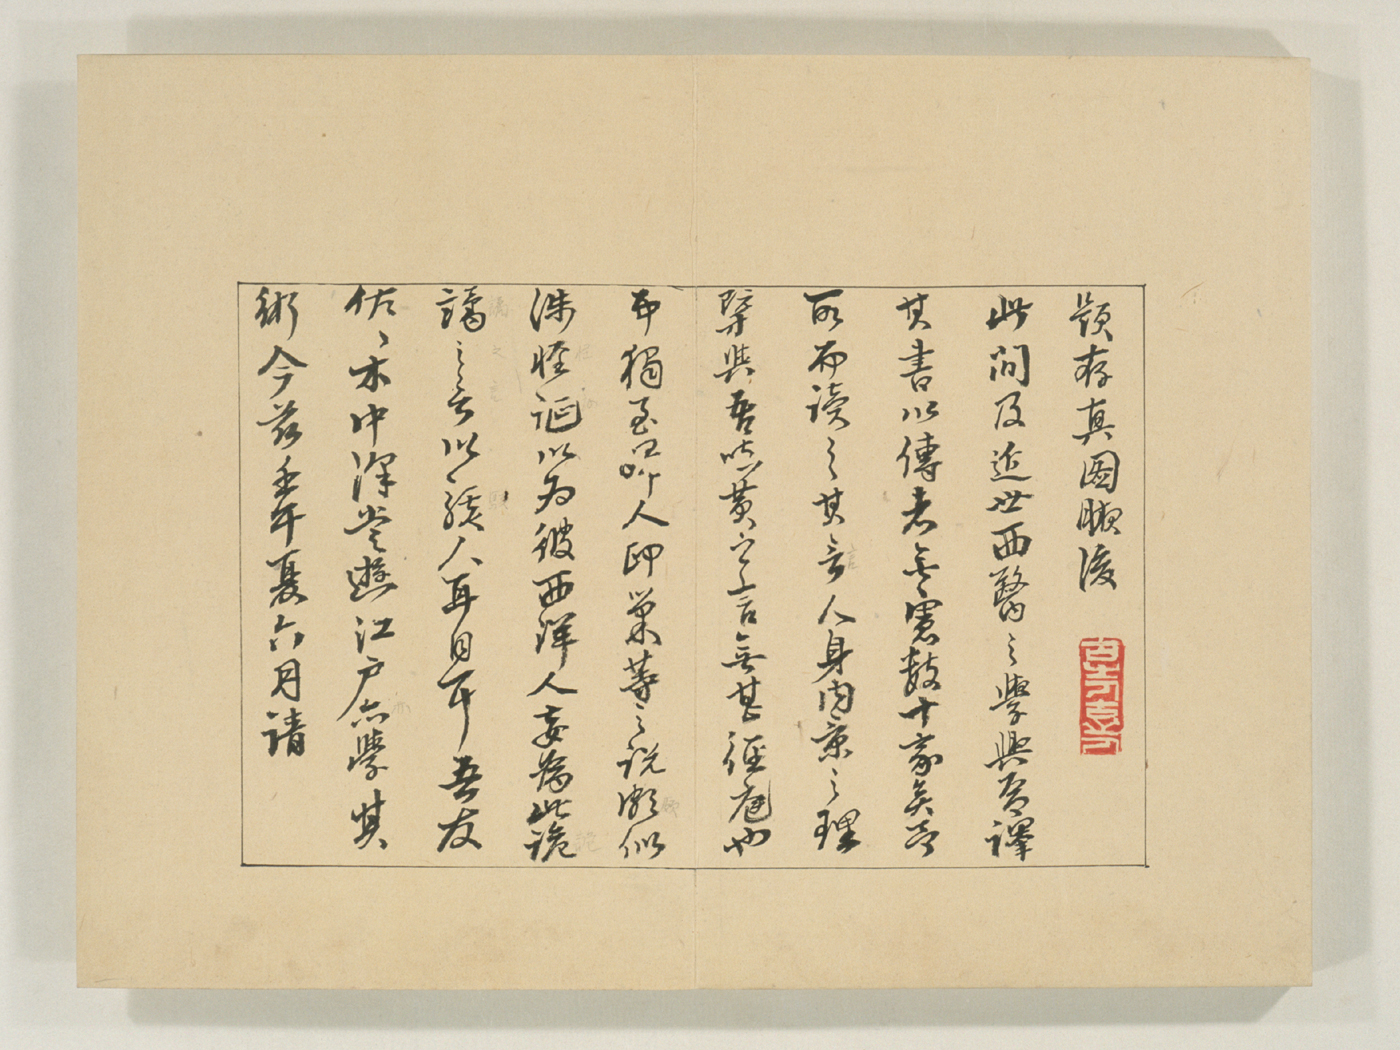 題存真圖腋後
此間及近世西醫之學興有譯
其書以傳者無慮數十家矣予
取而讀之其言人身内景之理
槩與吾岐黄之言無甚徑庭也
而獨至人卵巣等之説頗似
渉怪誕以為彼西洋人妄為此詭
譎之言以駭人耳目耳吾友
佐々木中澤嘗遊江戸亦學其
術今茲壬午夏六月請